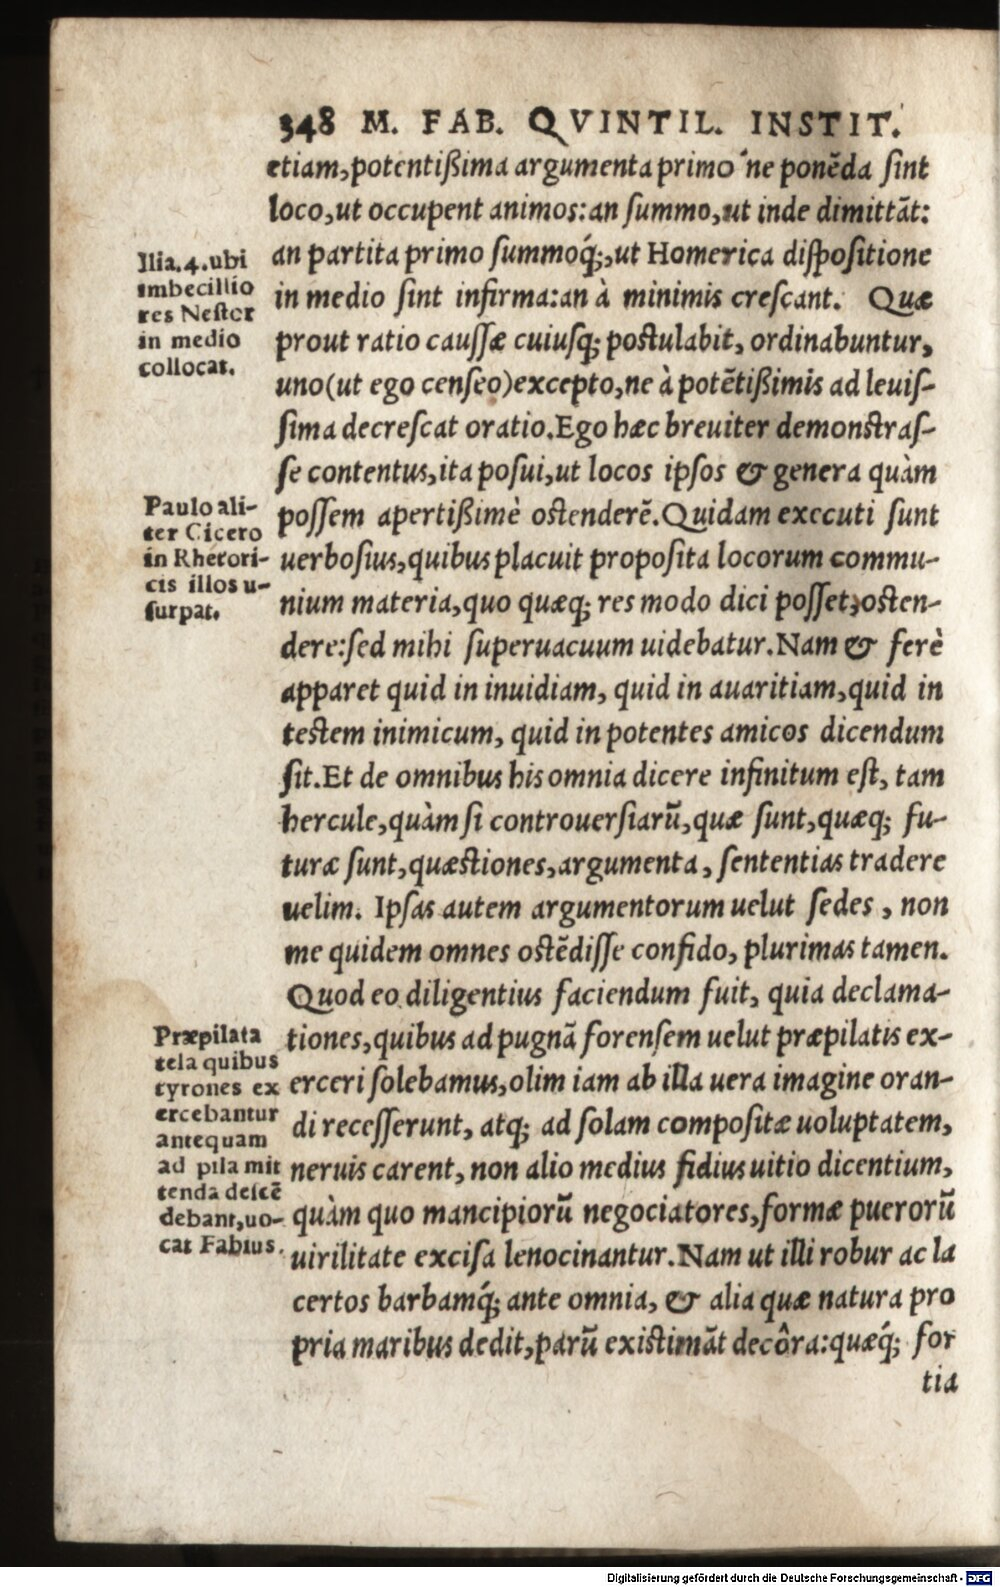 348 M. FAB. QVINTIL. INSTIT.
etiam, potentißima argumenta primo ne ponẽda ſint
loco, ut occupent animos: an ſummo, ut inde dimittãt:
an partita primo ſummoq́;, ut Homerica diſpoſitione
in medio ſint infirma: an à minimis creſcant. Quæ
prout ratio cauſſæ cuiuſq; poſtulabit, ordinabuntur,
uno (ut ego cenſeo) excepto, ne à potẽtißimis ad leuiſ-
ſima decreſcat oratio. Ego hæc breuiter demonſtraſ-
ſe contentus, ita poſui, ut locos ipſos & genera quàm
poſſem apertißimè oſtenderẽ. Quidam exccuti ſunt
uerboſius, quibus placuit propoſita locorum commu-
nium materia, quo quæq; res modo dici poſſet, oſten-
dere: ſed mihi ſuperuacuum uidebatur. Nam & ferè
apparet quid in inuidiam, quid in auaritiam, quid in
teſtem inimicum, quid in potentes amicos dicendum
ſit. Et de omnibus his omnia dicere infinitum eſt, tam
hercule, quàm ſi controuerſiarũ, quæ ſunt, quæq; fu-
turæ ſunt, quæſtiones, argumenta, ſententias tradere
uelim. Ipſas autem argumentorum uelut ſedes, non
me quidem omnes oſtẽdiſſe confido, plurimas tamen.
Quod eo diligentius faciendum fuit, quia declama-
tiones, quibus ad pugnã forenſem uelut præpilatis ex-
erceri ſolebamus, olim iam ab illa uera imagine oran-
di receſſerunt, atq; ad ſolam compoſitæ uoluptatem,
neruis carent, non alio medius fidius uitio dicentium,
quàm quo mancipiorũ negociatores, formæ puerorũ
uirilitate exciſa lenocinantur. Nam ut illi robur ac la
certos barbamq́; ante omnia, & alia quæ natura pro
pria maribus dedit, parũ exiſtimãt decôra: quæq́; for
tia
Ilia. 4. ubi
imbecillio
res Neſtor
in medio
collocat.
Paulo ali-
ter Cicero
in Rhetori-
cis illos u-
ſurpat.
Præpilata
tela quibus
tyrones ex
ercebantur
antequam
ad pila mit
tenda deſcẽ
debant, uo-
cat Fabius.
Digitalisierung gefördert durch die Deutsche Forschungsgemeinschaft - DFG